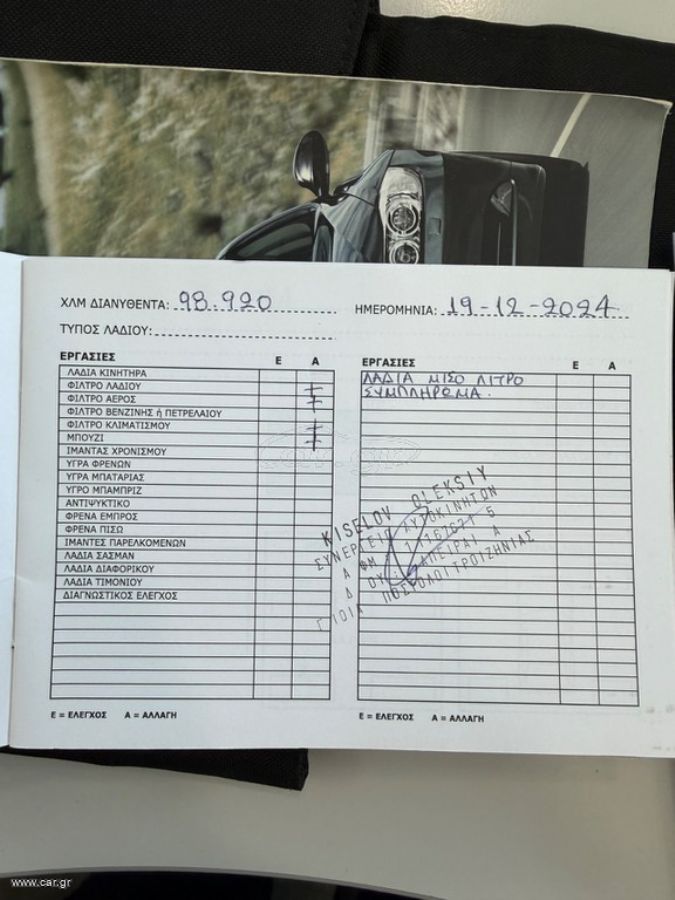 ΧΛΜ ΔΙΑΝΥΘΕΝΤΑ: 98.920
ΗΜΕΡΟΜΗΝΙΑ: 19-12-2024
ΤΥΠΟΣ ΛΑΔΙΟΥ:
ΕΡΓΑΣΙΕΣ Ε Α
ΛΑΔΙΑ ΚΙΝΗΤΗΡΑ
ΦΙΛΤΡΟ ΛΑΔΙΟΥ
ΦΙΛΤΡΟ ΑΕΡΟΣ
ΦΙΛΤΡΟ ΒΕΝΖΙΝΗΣ ή ΠΕΤΡΕΛΑΙΟΥ
ΦΙΛΤΡΟ ΚΛΙΜΑΤΙΣΜΟΥ
ΜΠΟΥΖΙ
ΙΜΑΝΤΑΣ ΧΡΟΝΙΣΜΟΥ
ΥΓΡΑ ΦΡΕΝΩΝ
ΥΓΡΑ ΜΠΑΤΑΡΙΑΣ
ΥΓΡΟ ΜΠΑΜΠΡΙΖ
ΑΝΤΙΨΥΚΤΙΚΟ
ΦΡΕΝΑ ΕΜΠΡΟΣ
ΦΡΕΝΑ ΠΙΣΩ
ΙΜΑΝΤΕΣ ΠΑΡΕΛΚΟΜΕΝΩΝ
ΛΑΔΙΑ ΣΑΣΜΑΝ
ΛΑΔΙΑ ΔΙΑΦΟΡΙΚΟΥ
ΛΑΔΙΑ ΤΙΜΟΝΙΟΥ
ΔΙΑΓΝΩΣΤΙΚΟΣ ΕΛΕΓΧΟΣ
Ε = ΕΛΕΓΧΟΣ Α = ΑΛΛΑΓΗ
ΕΡΓΑΣΙΕΣ Ε Α
ΛΑΔΙΑ ΜΙΣΟ ΛΙΤΡΟ
ΣΥΜΠΛΗΡΩΜΑ.
KISELOV OLEKSIY
ΣΥΝΕΡΓΕΙΟ ΑΥΤΟΚΙΝΗΤΩΝ
ΑΦΜ
ΔΟΥ: ΠΕΙΡΑΙ Α
ΤΡΟΙΖΗΝΙΑΣ
Ε = ΕΛΕΓΧΟΣ Α = ΑΛΛΑΓΗ
car.gr
www.car.gr